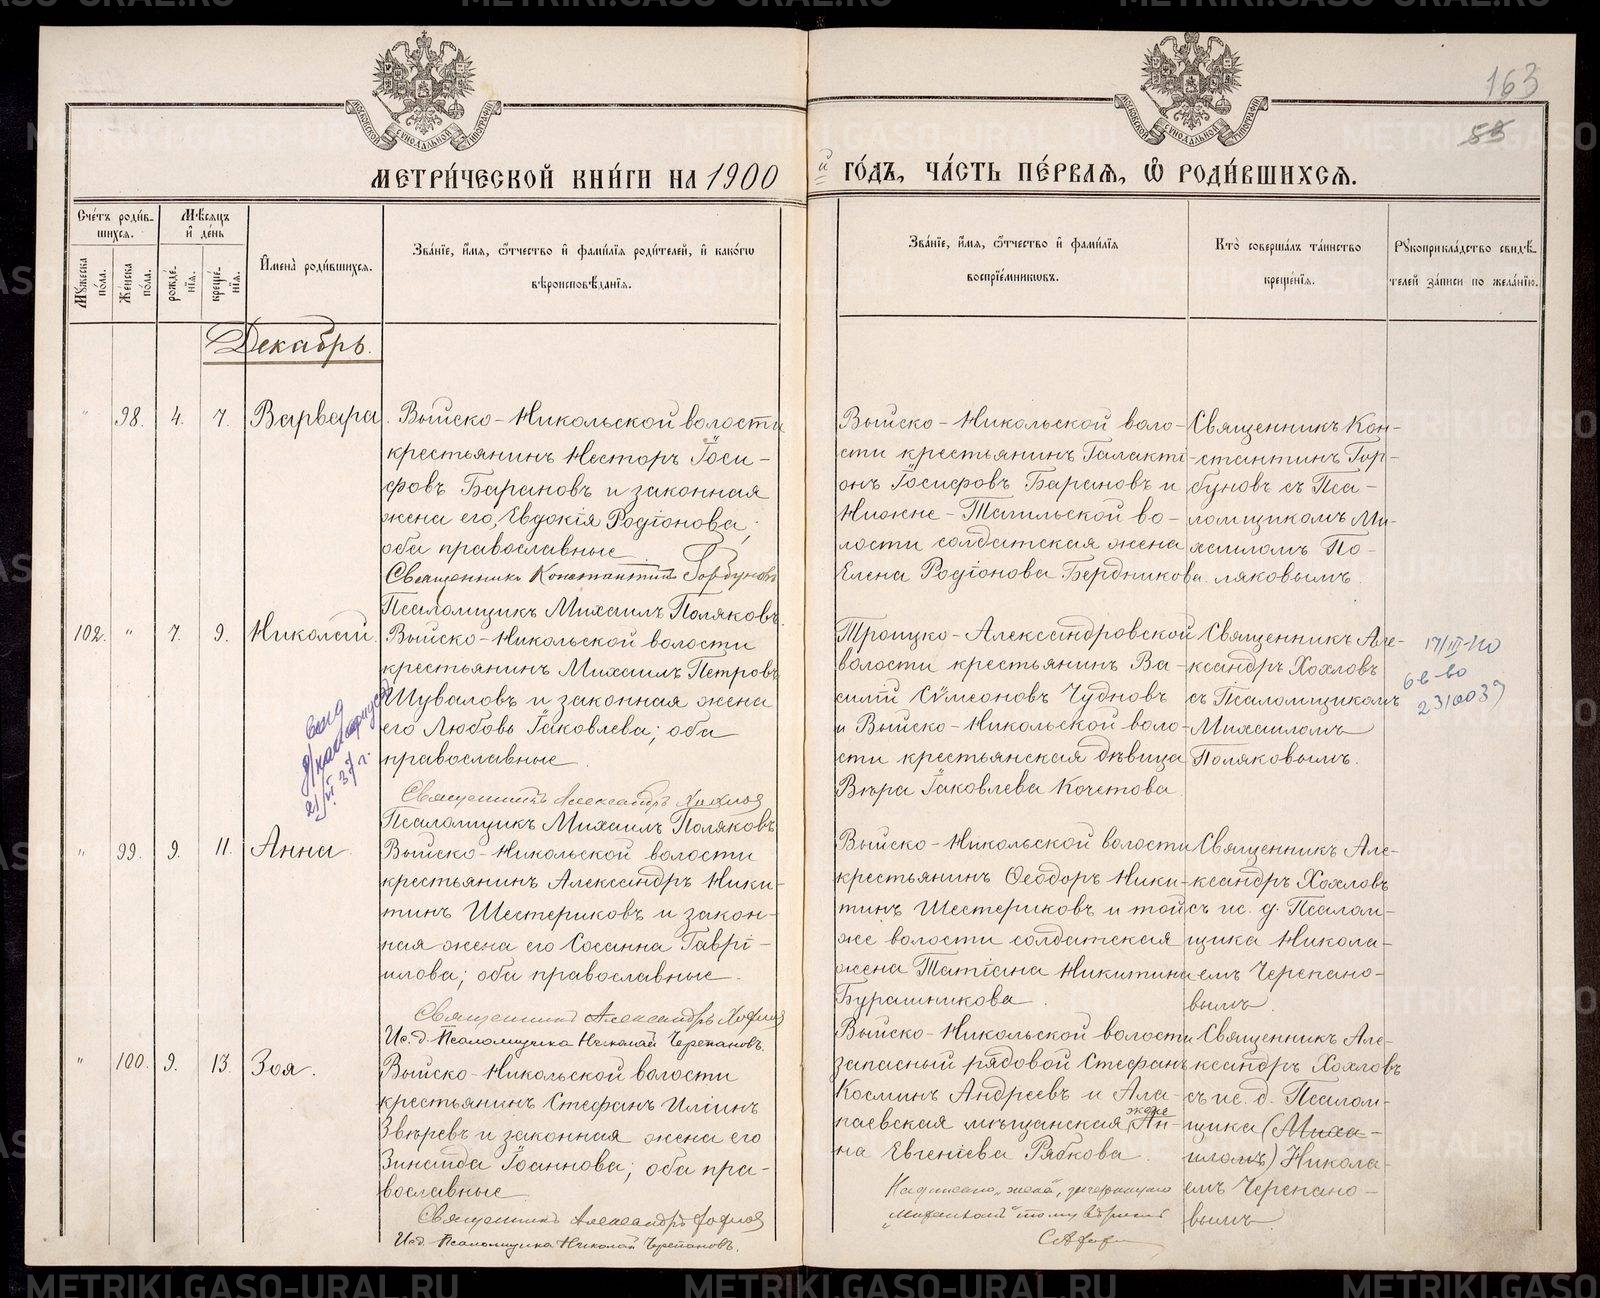 163
53
МЕТРИ́ЧЕСКОЙ КНИ́ГИ НА 1900 й ГО́ДЪ, ЧА́СТЬ ПЕ́РВАѦ, Ѡ҆ РОДИ́ВШИХСѦ.
Сче́тъ роди́в-
шихсѧ.
Мꙋ́жеска по́ла.
Же́нска по́ла.
Мѣ́сѧцъ и҆ де́нь
рожде́-нїѧ.
креще́-нїѧ.
И҆мена̀ роди́вшихсѧ.
Зва́нїе, и҆́мѧ, ѻ҆́тчество и҆ фами́лїѧ роди́телей, и҆ како́гѡ
вѣроисповѣ́данїѧ.
Зва́нїе, и҆́мѧ, ѻ҆́тчество и҆ фами́лїѧ
воспрїе́мникѡвъ.
Кто̀ соверша́лъ та́инство
креще́нїѧ.
Рꙋкоприкла́дство свидѣ́-
телей за́писи по жела́нїю.
Декабрь.
" 98. 4. 7. Варвара.
Выйско-Никольской волости
крестьянинъ Несторъ Іоси-
фовъ Барановъ и законная
жена его, Евдокія Родіонова;
оба православные
Священникъ Константинъ Горбуновъ
Псаломщикъ Михаилъ Поляковъ.
Выйско-Никольской воло-
сти крестьянинъ Галакті-
онъ Іосифовъ Барановъ и
Нижне-Тагильской во-
лости солдатская жена
Елена Родіонова Бердникова.
Священникъ Кон-
стантинъ Гор-
буновъ съ Пса-
ломщикомъ Ми-
хаиломъ По-
ляковымъ.
102. " 7. 9. Николай.
Выйско-Никольской волости
крестьянинъ Михаилъ Петровъ
Шуваловъ и законная жена
его Любовь Іаковлева; оба
православные.
Священникъ Александръ Хохловъ
Псаломщикъ Михаилъ Поляковъ
21/VI 37 г.
Троицко-Александровской
волости крестьянинъ Ва-
силій Сѵмеоновъ Чудновъ
и Выйско-Никольской воло-
сти крестьянская дѣвица
Вѣра Іаковлева Кочетова.
Священникъ Але-
ксандръ Хохловъ
съ Псаломщикомъ
Михаиломъ
Поляковымъ.
17/III-40
св-во
2310039
" 99. 9. 11. Анна.
Выйско-Никольской волости
крестьянинъ Александръ Ники-
тинъ Шестериковъ и закон-
ная жена его Сосанна Гаврі-
илова; оба православные.
Священникъ Александръ Хохловъ
Ис.д. Псаломщика Николай Черепановъ.
Выйско-Никольской волости
крестьянинъ Ѳеодоръ Ники-
тинъ Шестериковъ и той
же волости солдатская
жена Татіана Никитина
Бурашникова.
Священникъ Але-
ксандръ Хохловъ
съ ис. д. Псалом-
щика Никола-
емъ Черепано-
вымъ
" 100. 9. 13. Зоя.
Выйско-Никольской волости
крестьянинъ Стефанъ Иліинъ
Звѣревъ и законная жена его
Зинаида Іоаннова; оба пра-
вославные
Священникъ Александръ Хохловъ
Ис.д. Псаломщика Николай Черепановъ.
Выйско-Никольской волости
запасный рядовой Стефанъ
Косминъ Андреевъ и Ала-
паевская мѣщанская жена Ан-
на Евгеніева Рябкова.
Надписано „жена", зачеркнутому
„Михаиломъ" тому вѣрить
Священникъ Але-
ксандръ Хохловъ
съ ис. д. Псалом-
щика (Миха-
иломъ) Никола-
емъ Черепано-
вымъ
METRIKI.GASO-URAL.RU